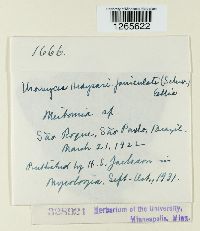 1265622
1666.
Uromyces Hedysari paniculati (Schw.)
Farl.
Meibomia sp
São Roque, São Paulo, Brazil.
March 21, 1922
Published by H. S. Jackson in
Mycologia, Sept-Oct., 1931.
325921 Herbarium of the University,
Minneapolis, Minn.